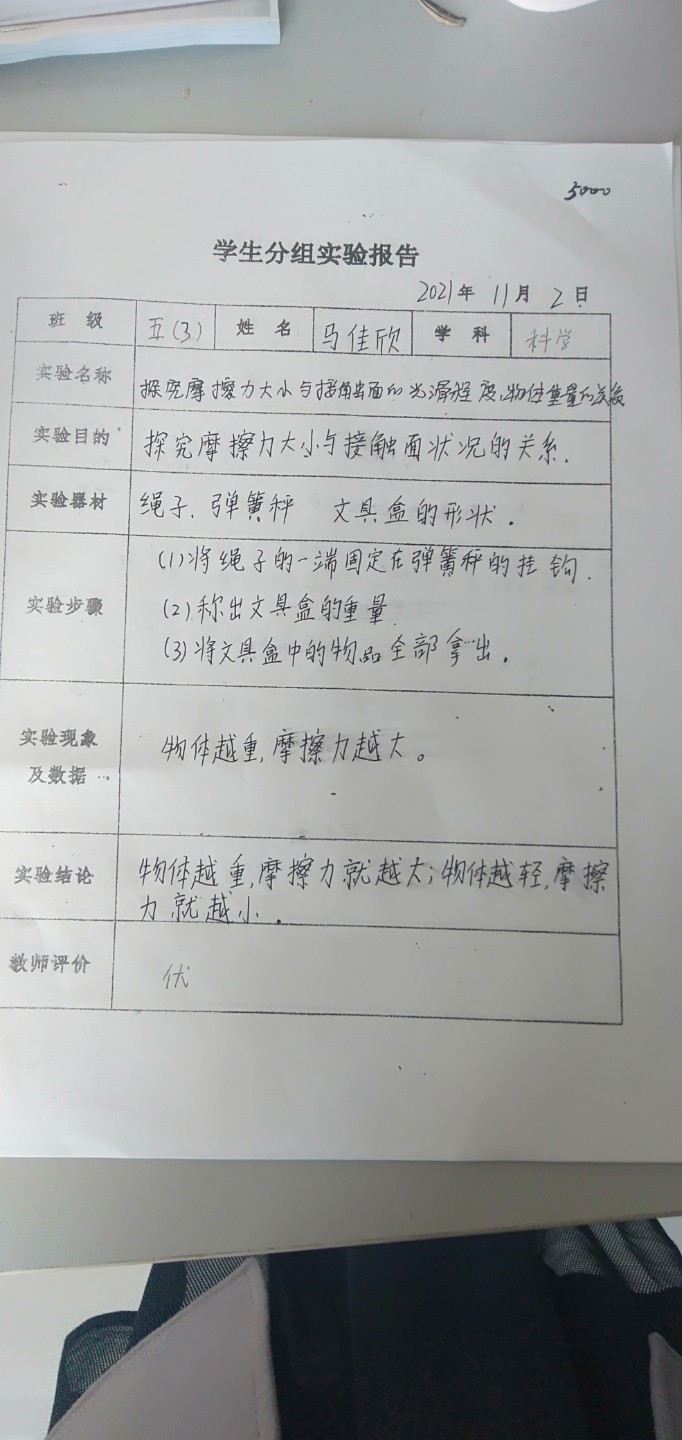 5000
学生分组实验报告
2021年 11月 2日
班 级 五(3) 姓 名 马佳欣 学 科 科学
实验名称 探究摩擦力大小与接触面的光滑程度,物体重量的关系
实验目的 探究摩擦力大小与接触面状况的关系.
实验器材 绳子、弹簧秤 文具盒的形状.
实验步骤 (1)将绳子的一端固定在弹簧秤的挂钩.
(2)称出文具盒的重量.
(3)将文具盒中的物品全部拿出.
实验现象
及数据
物体越重,摩擦力越大。
实验结论 物体越重,摩擦力就越大;物体越轻,摩擦
力就越小.
教师评价 优